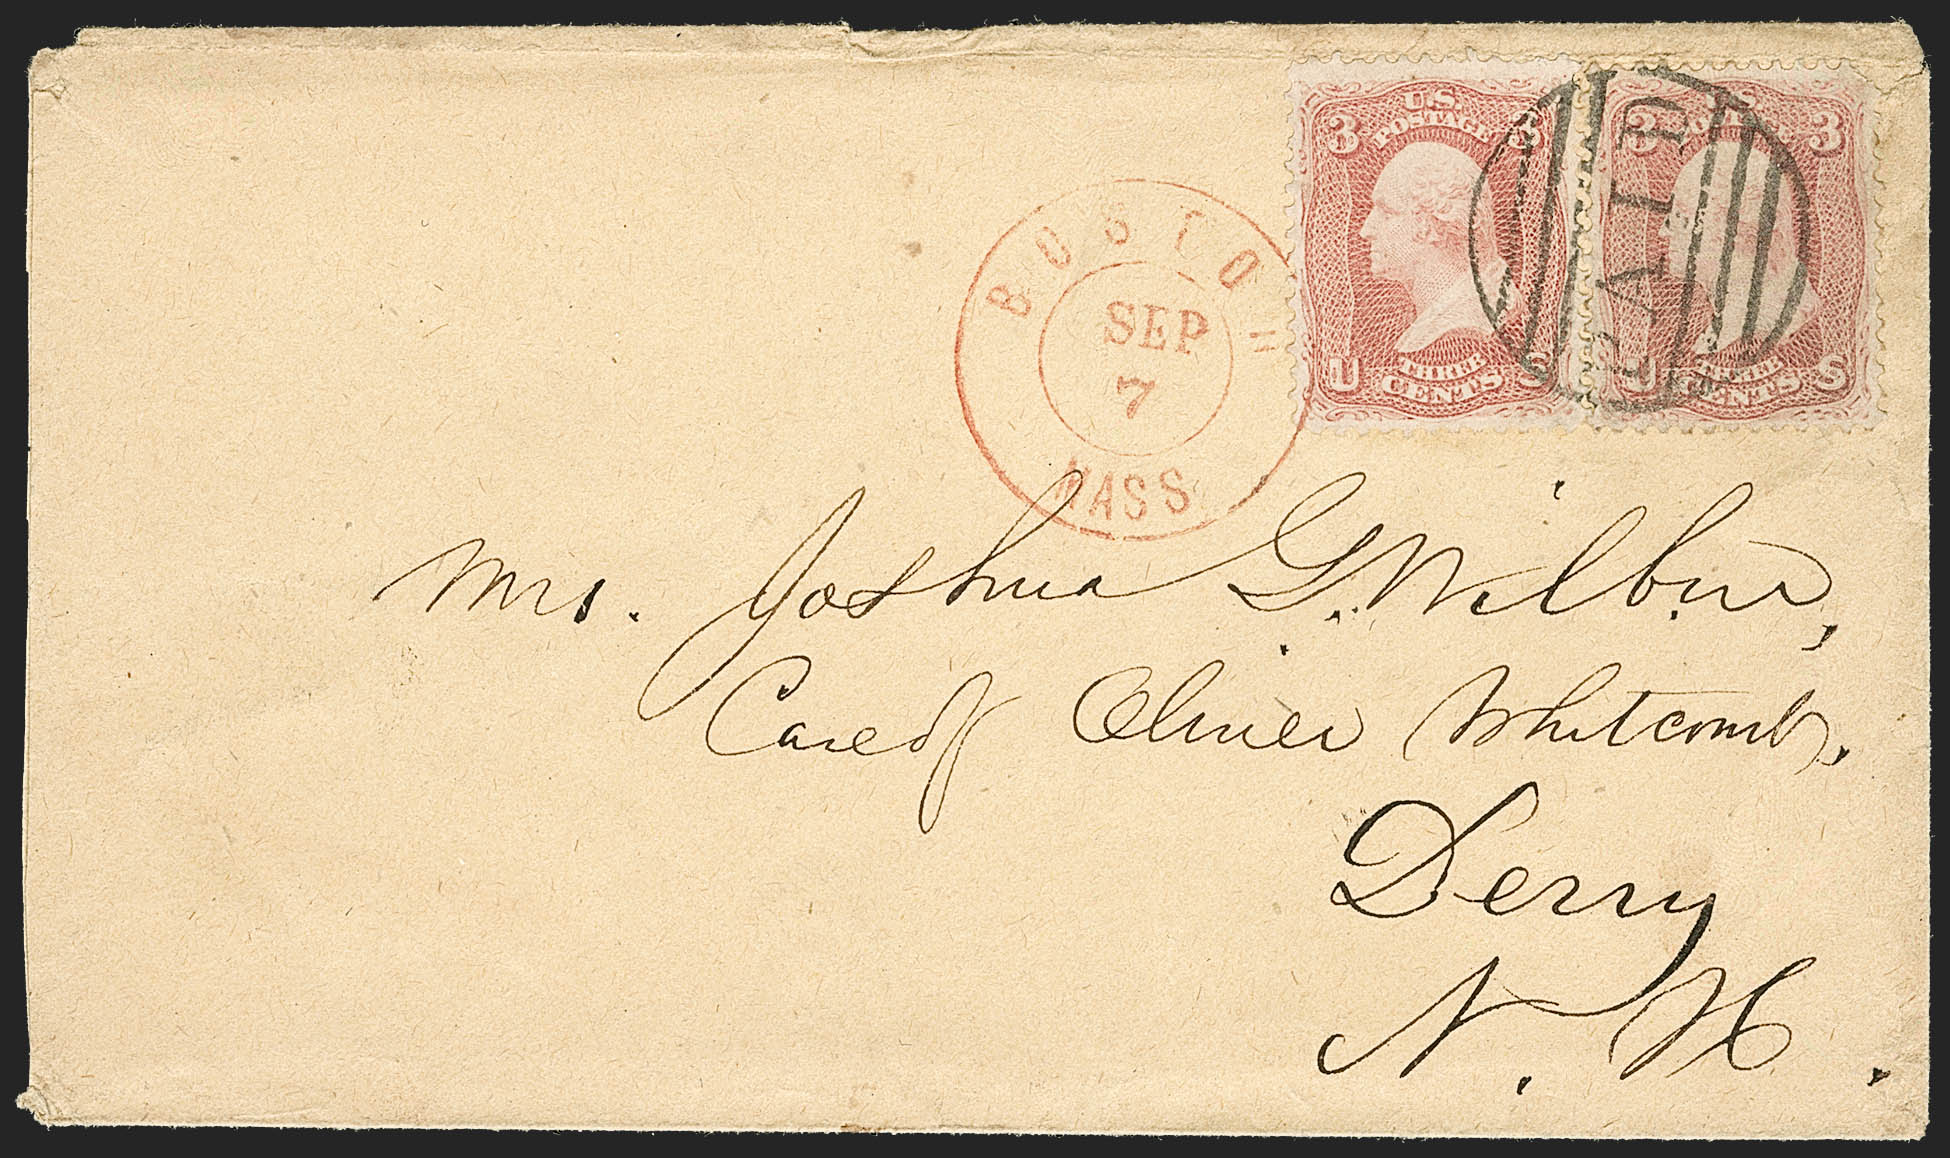 U.S. POSTAGE
3 3
U S
THREE CENTS
U.S. POSTAGE
3 3
U S
THREE CENTS
PAID
BOSTON
SEP
7
MASS
Mrs. Joshua G. Wilbur,
Care of Oliver Whitcomb.
Derry
N. H.